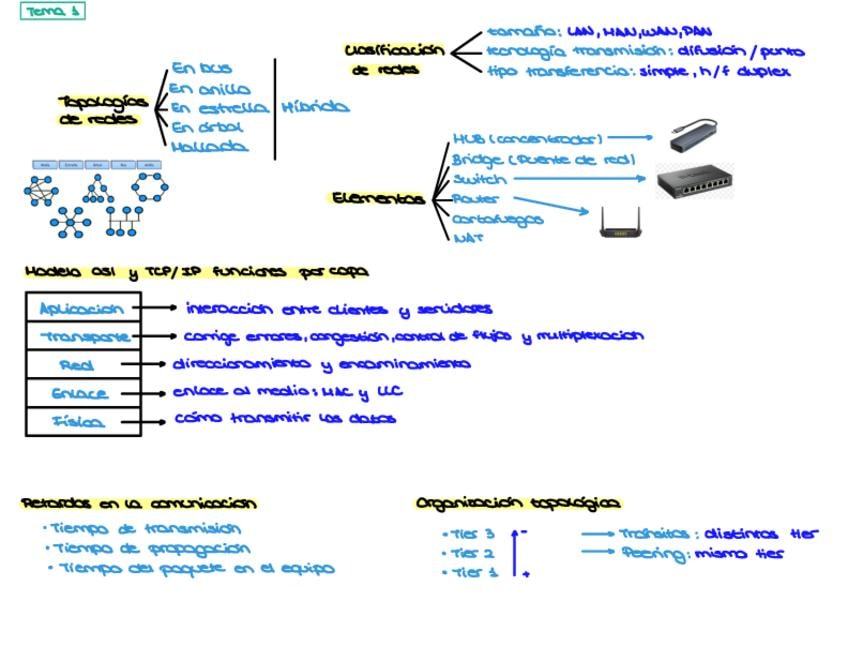 Tema 1
Topologías
de redes
En bus
En anillo
En estrella
En árbol
Mallada
Híbrido
Clasificación
de redes
tamaño: LAN, MAN, WAN, PAN
tecnología transmisión: difusión / punto
tipo transferencia: simple, h/f duplex
Elementos
HUB (concentrador)
Bridge (puente de red)
Switch
Router
Cortafuegos
NAT
Modelo OSI y TCP/IP funciones por capa
Aplicación → interacción entre clientes y servidores
Transporte → corrige errores, congestión, control de flujos y multiplexación
Red → direccionamiento y encaminamiento
Enlace → enlace al medio: MAC y LLC
Física → cómo transmitir los datos
Retardos en la comunicación
· Tiempo de transmisión
· Tiempo de propagación
· Tiempo del paquete en el equipo
Organización topológica
· Tier 3 -
· Tier 2
· Tier 1 +
→ Tránsitos: distintos tier
→ Peering: mismo tier